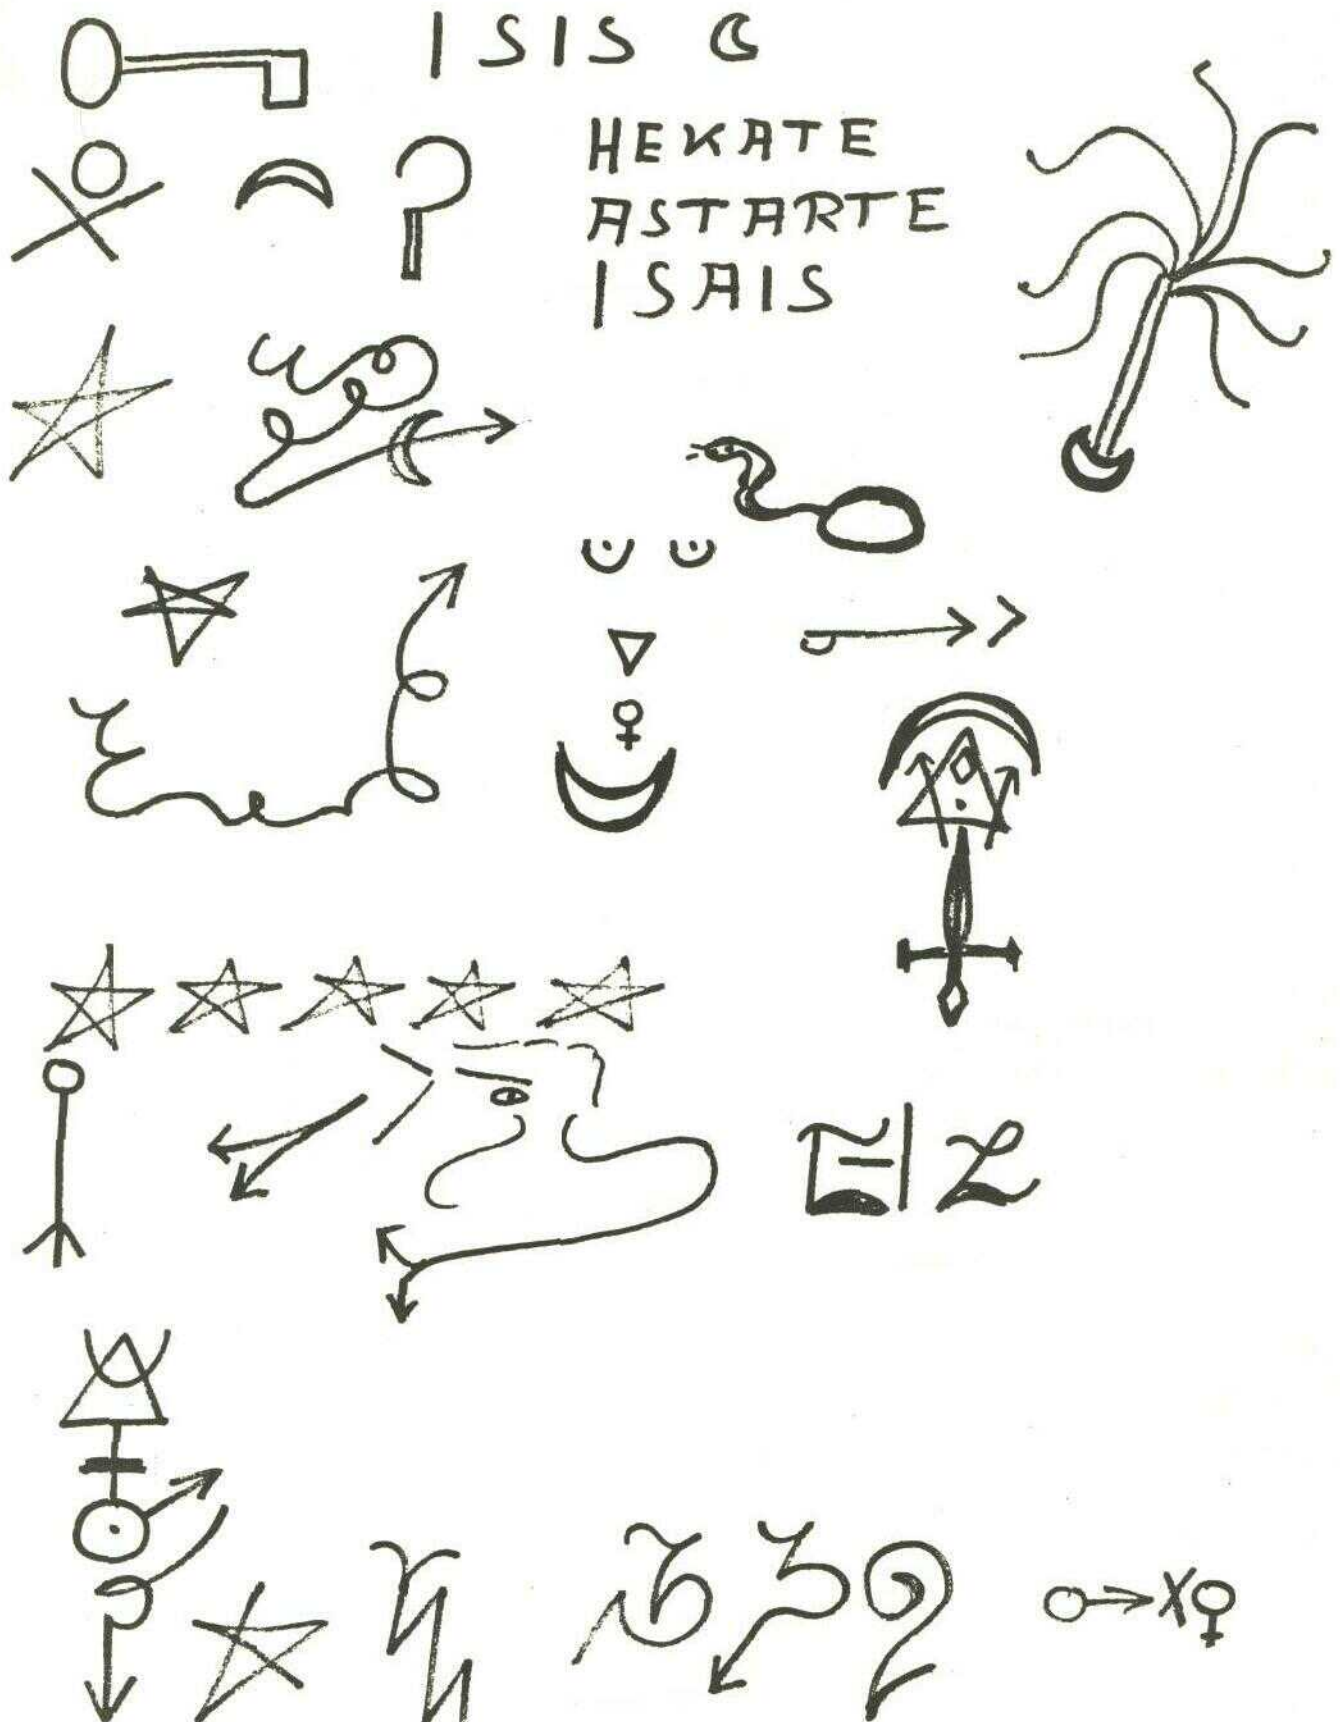 ISIS
HEKATE
ASTARTE
ISAIS